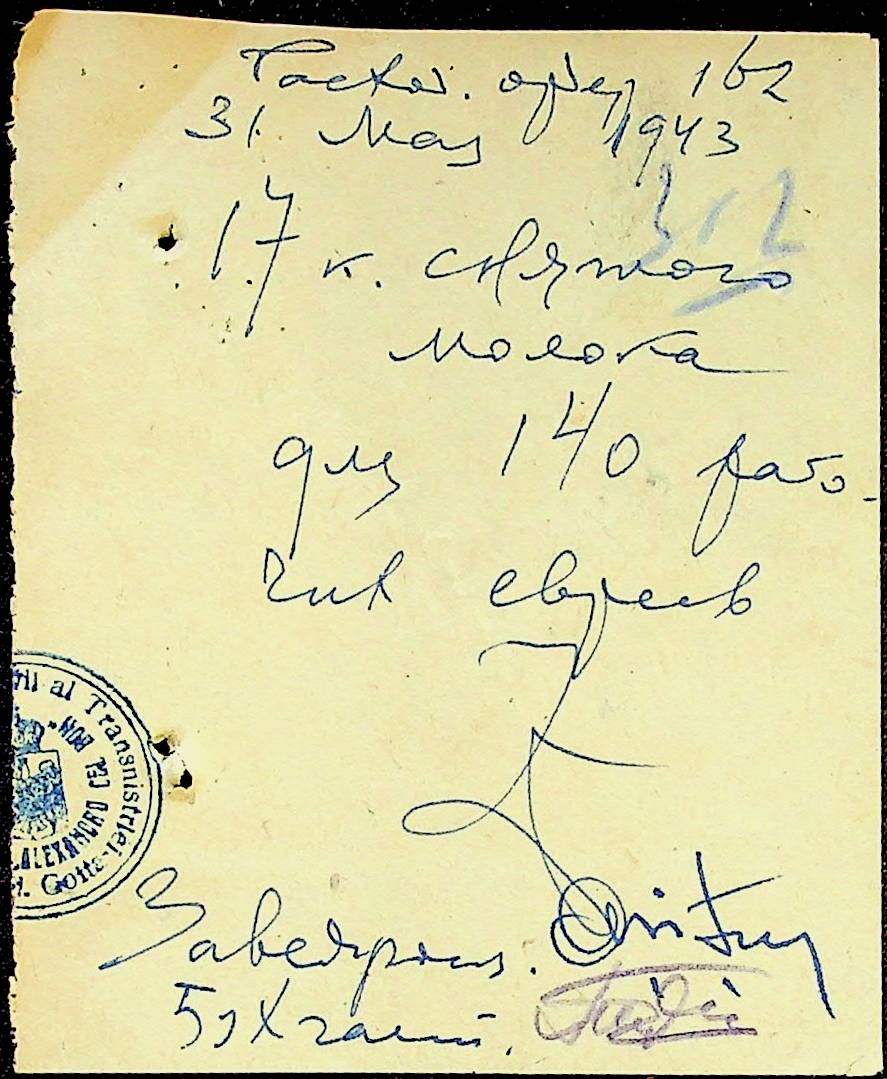 Расход. ордер 162
31. Мая 1943
312
17 к. снятого
молока
для 140 рабо-
чих евреев
Заведующ.
Бухгалт.
ll al Transnistriei
ALEXANDRU CEL BUN